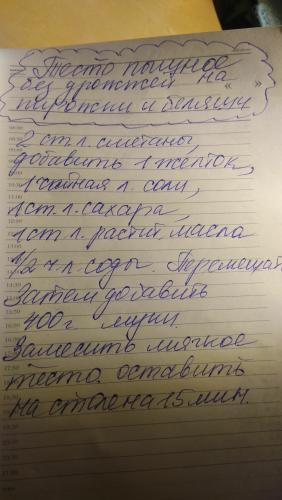 Тесто пышное
без дрожжей на
пирожки и беляши
2 ст.л. сметаны,
добавить 1 желток,
1 чайная л. соли,
1 ст.л. сахара,
1 ст.л. растит. масла
1/2 ч л. соды. Перемешать
Затем добавить
400 г. муки.
Замесить мягкое
тесто. оставить
на столе на 15 мин.